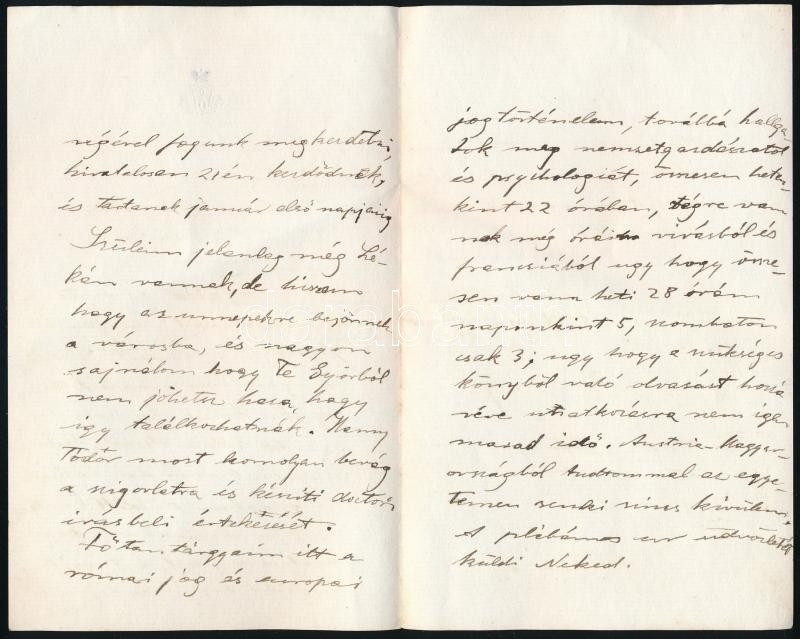 végével fogunk megkezdetni,
hivatalosan 21én kezdődnek,
és tartanak január első napjáig
Szüleim jelenleg még Lé-
kán vannak, de hiszem
hogy az ünnepekre bejönnek
a városba, és nagyon
sajnálom hogy Te Győrből
nem jöhetsz haza, hogy
így találkozhatnánk.
Tódor most komolyan bevág
a szigorlatra és készíti doctori
írásbeli értekezését.
Fő tantárgyaim itt a
római jog és europai
jogtörténelem, továbbá hallga-
tok még nemzetgazdászatot
és psychologiát, összesen heten-
kint 22 órában, végre van-
nak még óráim vivásból és
francziából ugy hogy össze-
sen van heti 28 órám
naponkint 5, szombaton
csak 3; ugy hogy a szükséges
könyből való olvasást hozzá
véve unatkozásra nem igen
marad idő. Austria-Magyar-
országból tudtommal az egye-
temen senki sincs kívülem.
A plébános ur üdvözletét
küldi Neked.